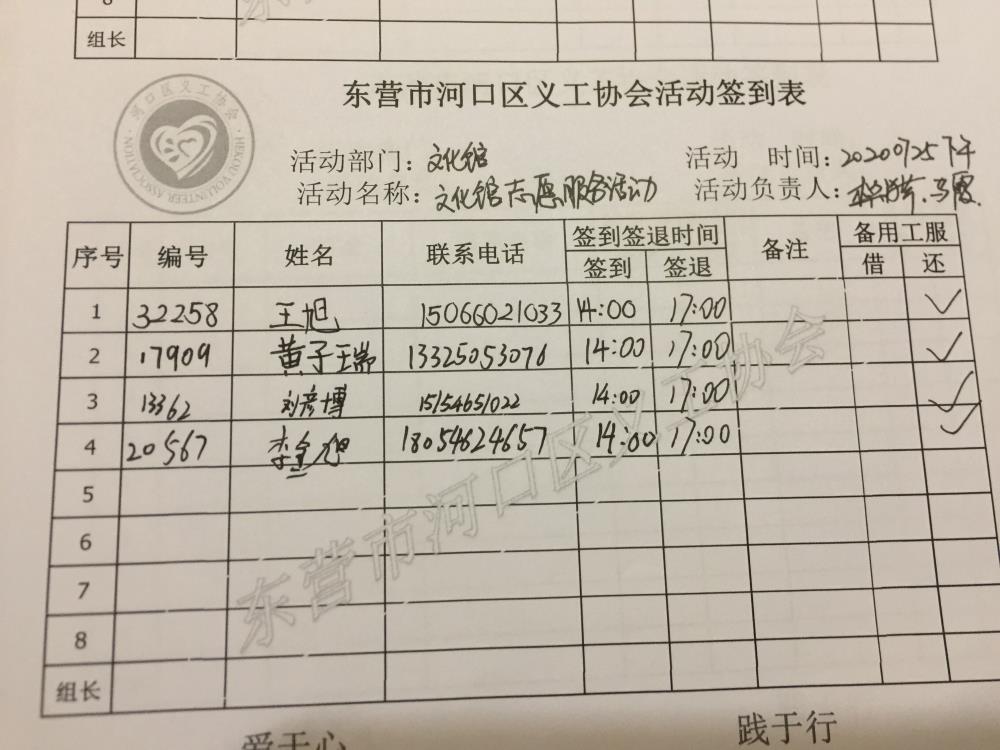 8
组长
东营市河口区义工协会活动签到表
河口区义工协会
HEKOU VOLUNTEER ASSOCIATION
活动部门：文化馆 活动 时间：20200725下午
活动名称：文化馆志愿服务活动 活动负责人：
序号 编号 姓名 联系电话 签到签退时间 备注 备用工服
签到 签退 借 还
1 32258 王旭 15066021033 14:00 17:00 ✓
2 17909 黄子瑞 13325053076 14:00 17:00 ✓
3 13362 刘彦博 15154651022 14:00 17:00 ✓
4 20567 李 18054624657 14:00 17:00 ✓
5
6
7
8
组长
东营市河口区义工协会
爱于心 践于行